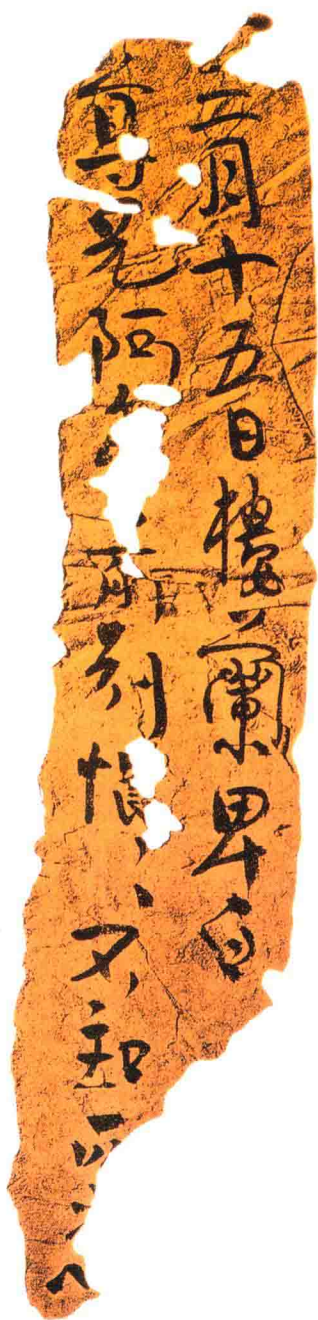 月十五日樓蘭卑白
尊兄阿別悵〻不知